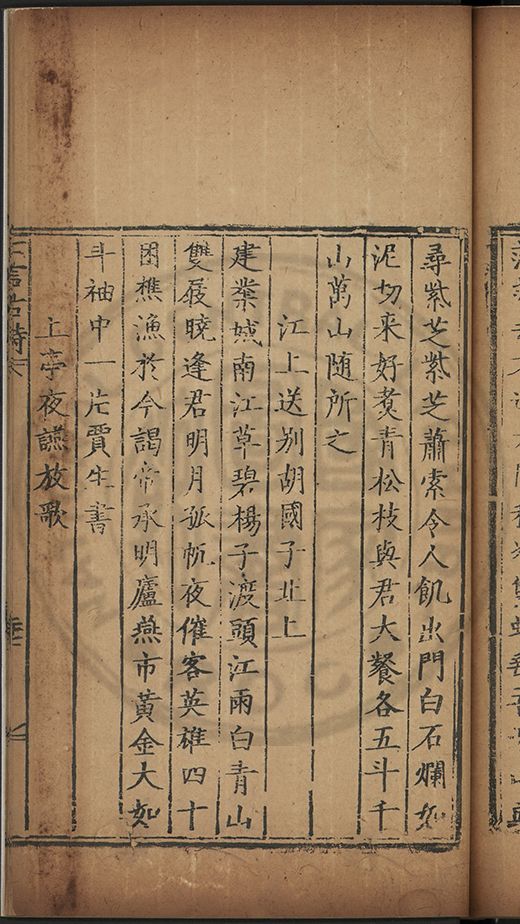 尋紫芝紫芝蕭索令人飢出門白石爛如
泥切来好煑青松枝與君大餐各五斗千
山萬山随所之
江上送别胡國子北上
建業城南江草碧楊子渡頭江雨白青山
雙屐曉逢君明月孤帆夜催客英雄四十
困樵漁於今謁帝承明廬燕市黄金大如
斗袖中一片賈生書
上亭夜讌放歌
七言古詩